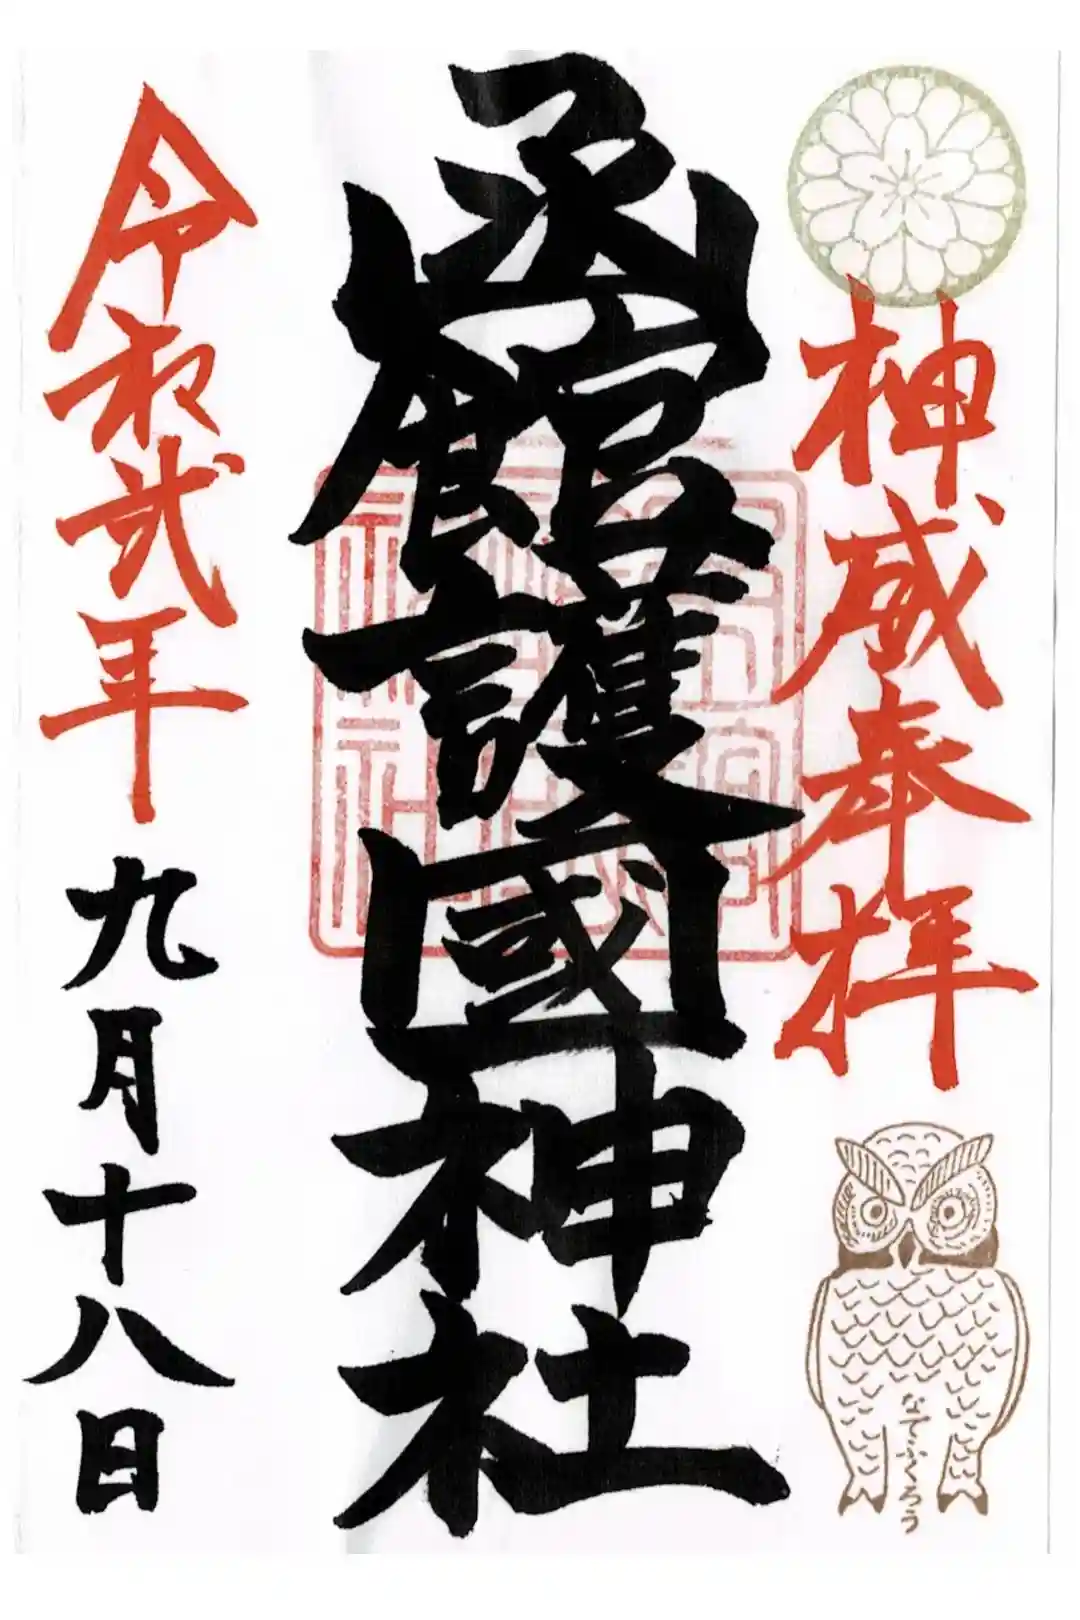 神威奉拝
なでふくろう
函館護國神社
令和弐年
九月十八日